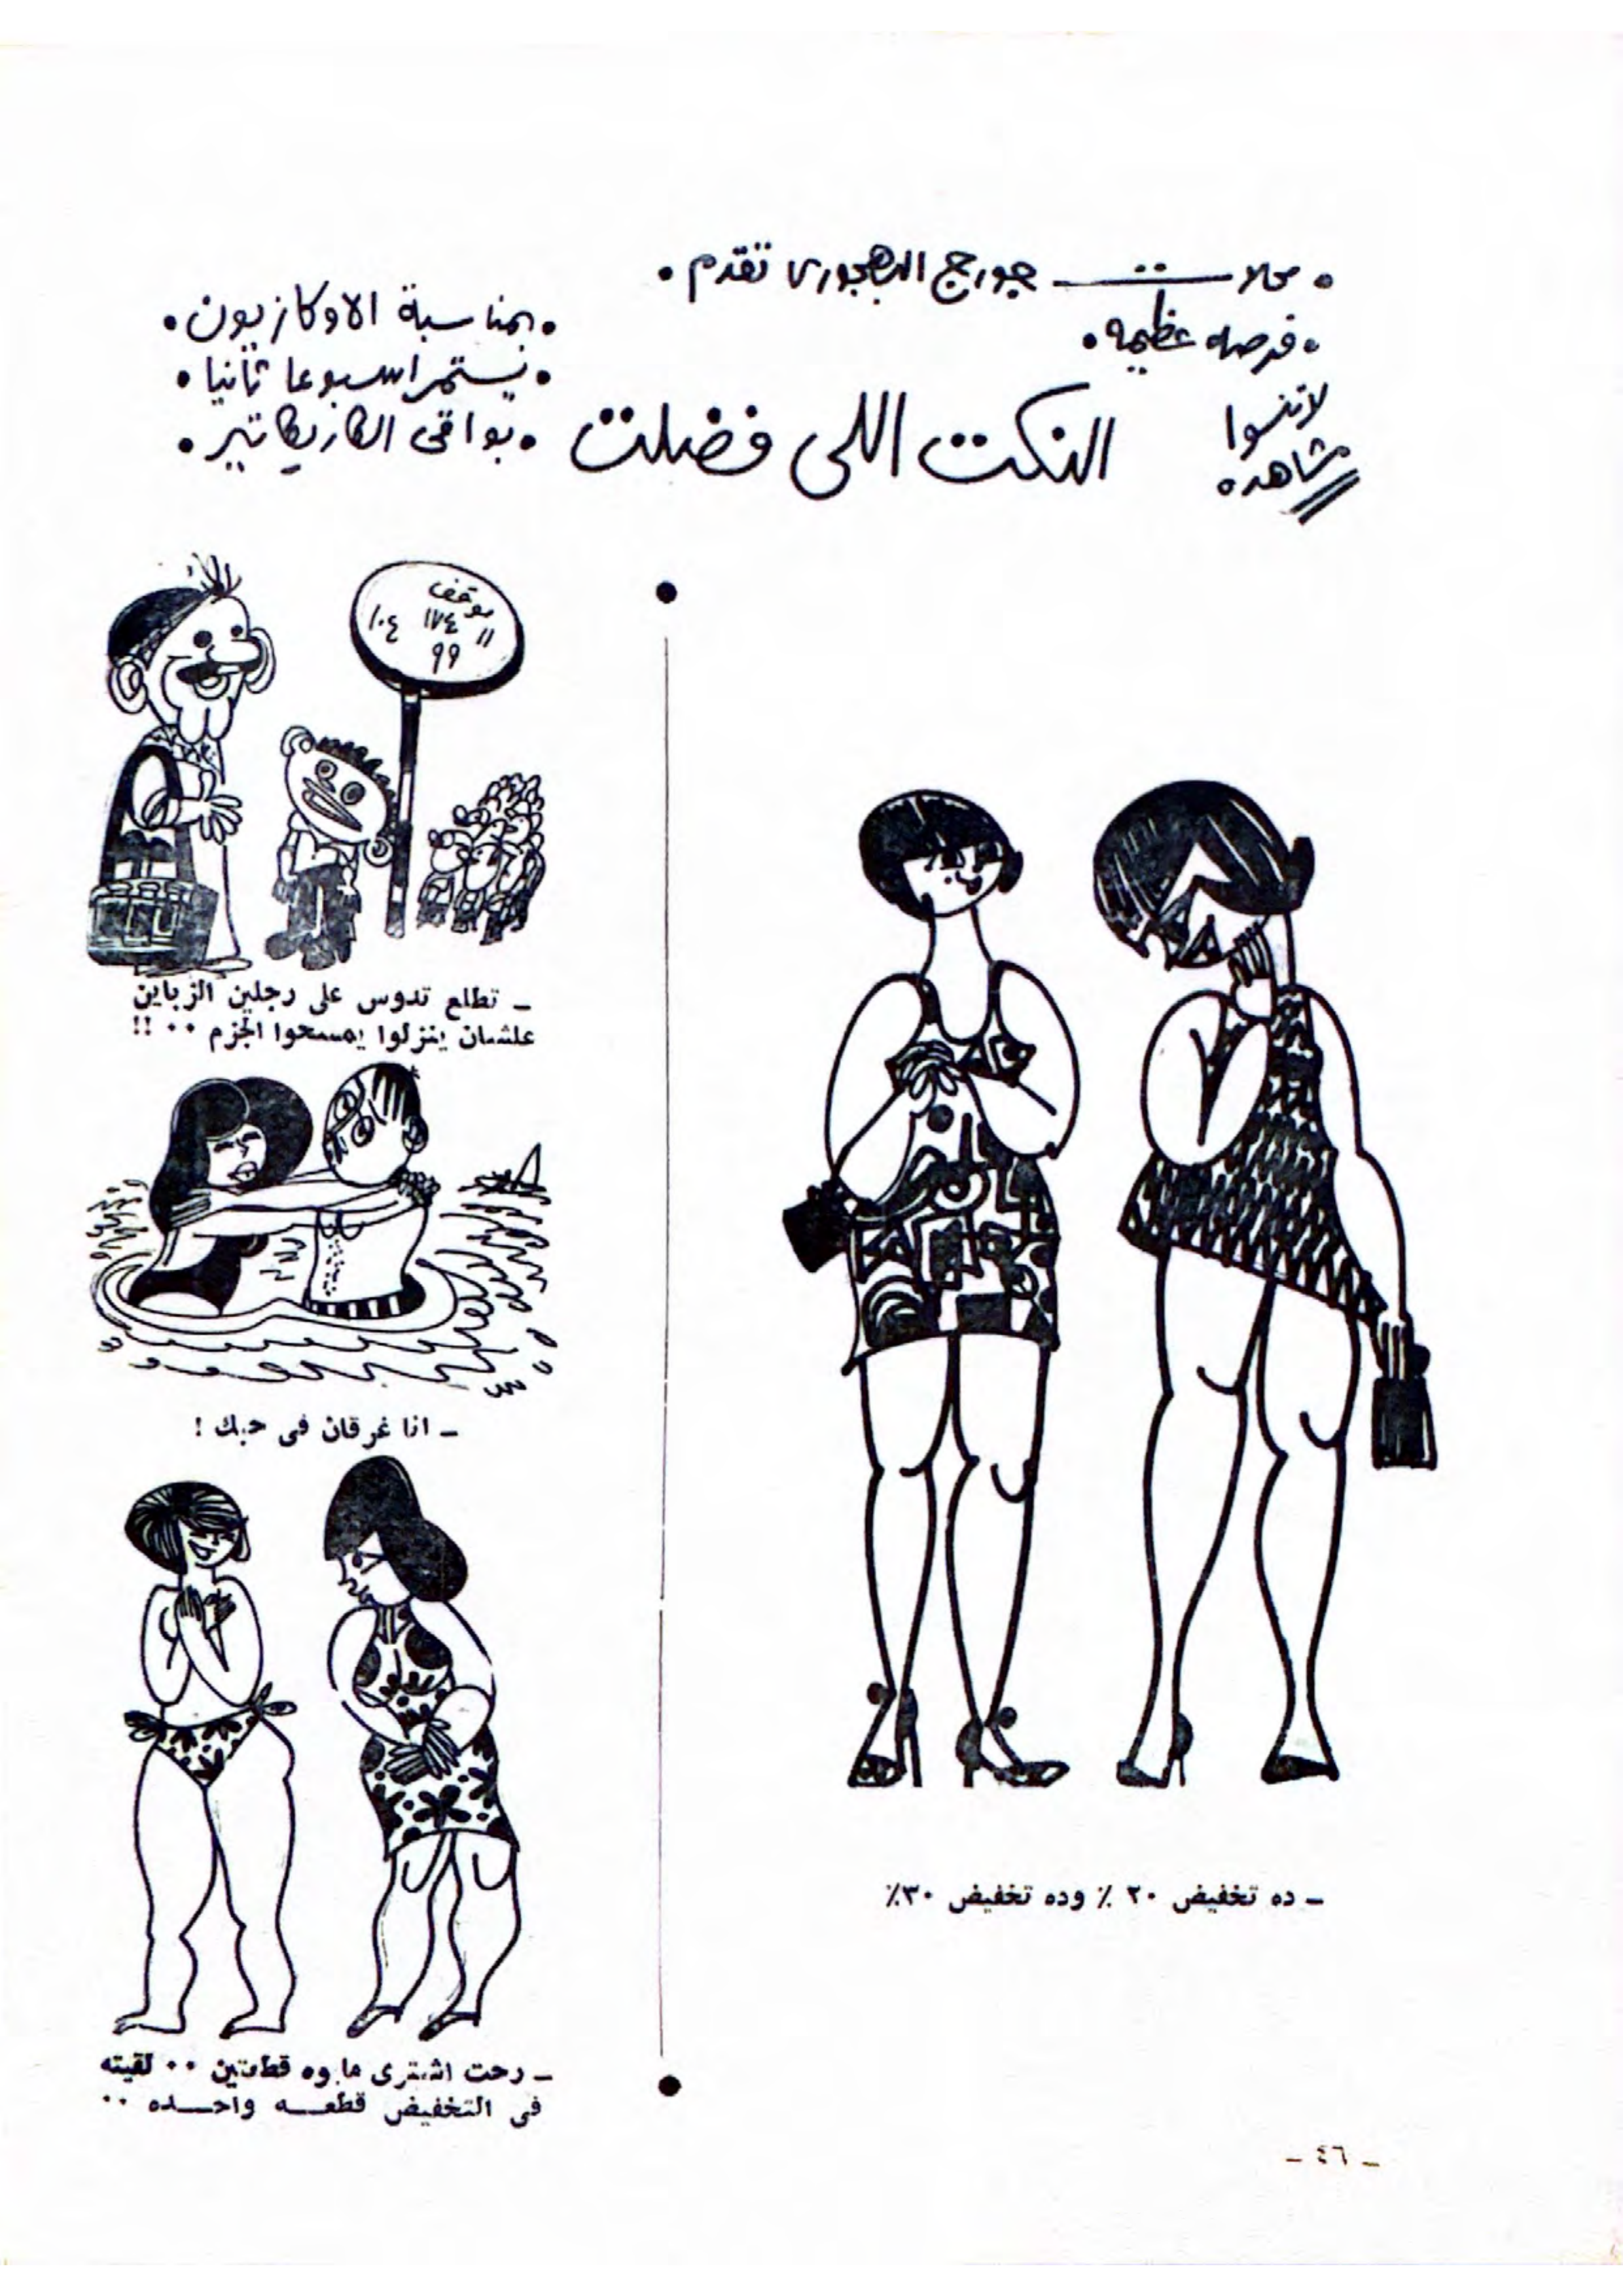 • محلات جورج البهجورى تقدم •
• فرصه عظيمه •
لاتنسوا
مشاهدة
النكت اللى فضلت
• بمناسبة الاوكازيون •
• نستمر اسبوعا ثانيا •
• بواقى الكاريكاتير •
موقف
١٠٤ ١٧٤ //
٩٩
ـ تطلع تدوس على رجلين الزباين
علشان ينزلوا يمسحوا الجزم ٠٠ !!
ـ انا غرقان فى حبك !
ـ رحت اشترى مايوه قطعتين ٠٠ لقيته
فى التخفيض قطعـــه واحـــده ٠٠
ـ ده تخفيض ٢٠ ٪ وده تخفيض ٣٠٪
ـ ٤٦ ـ